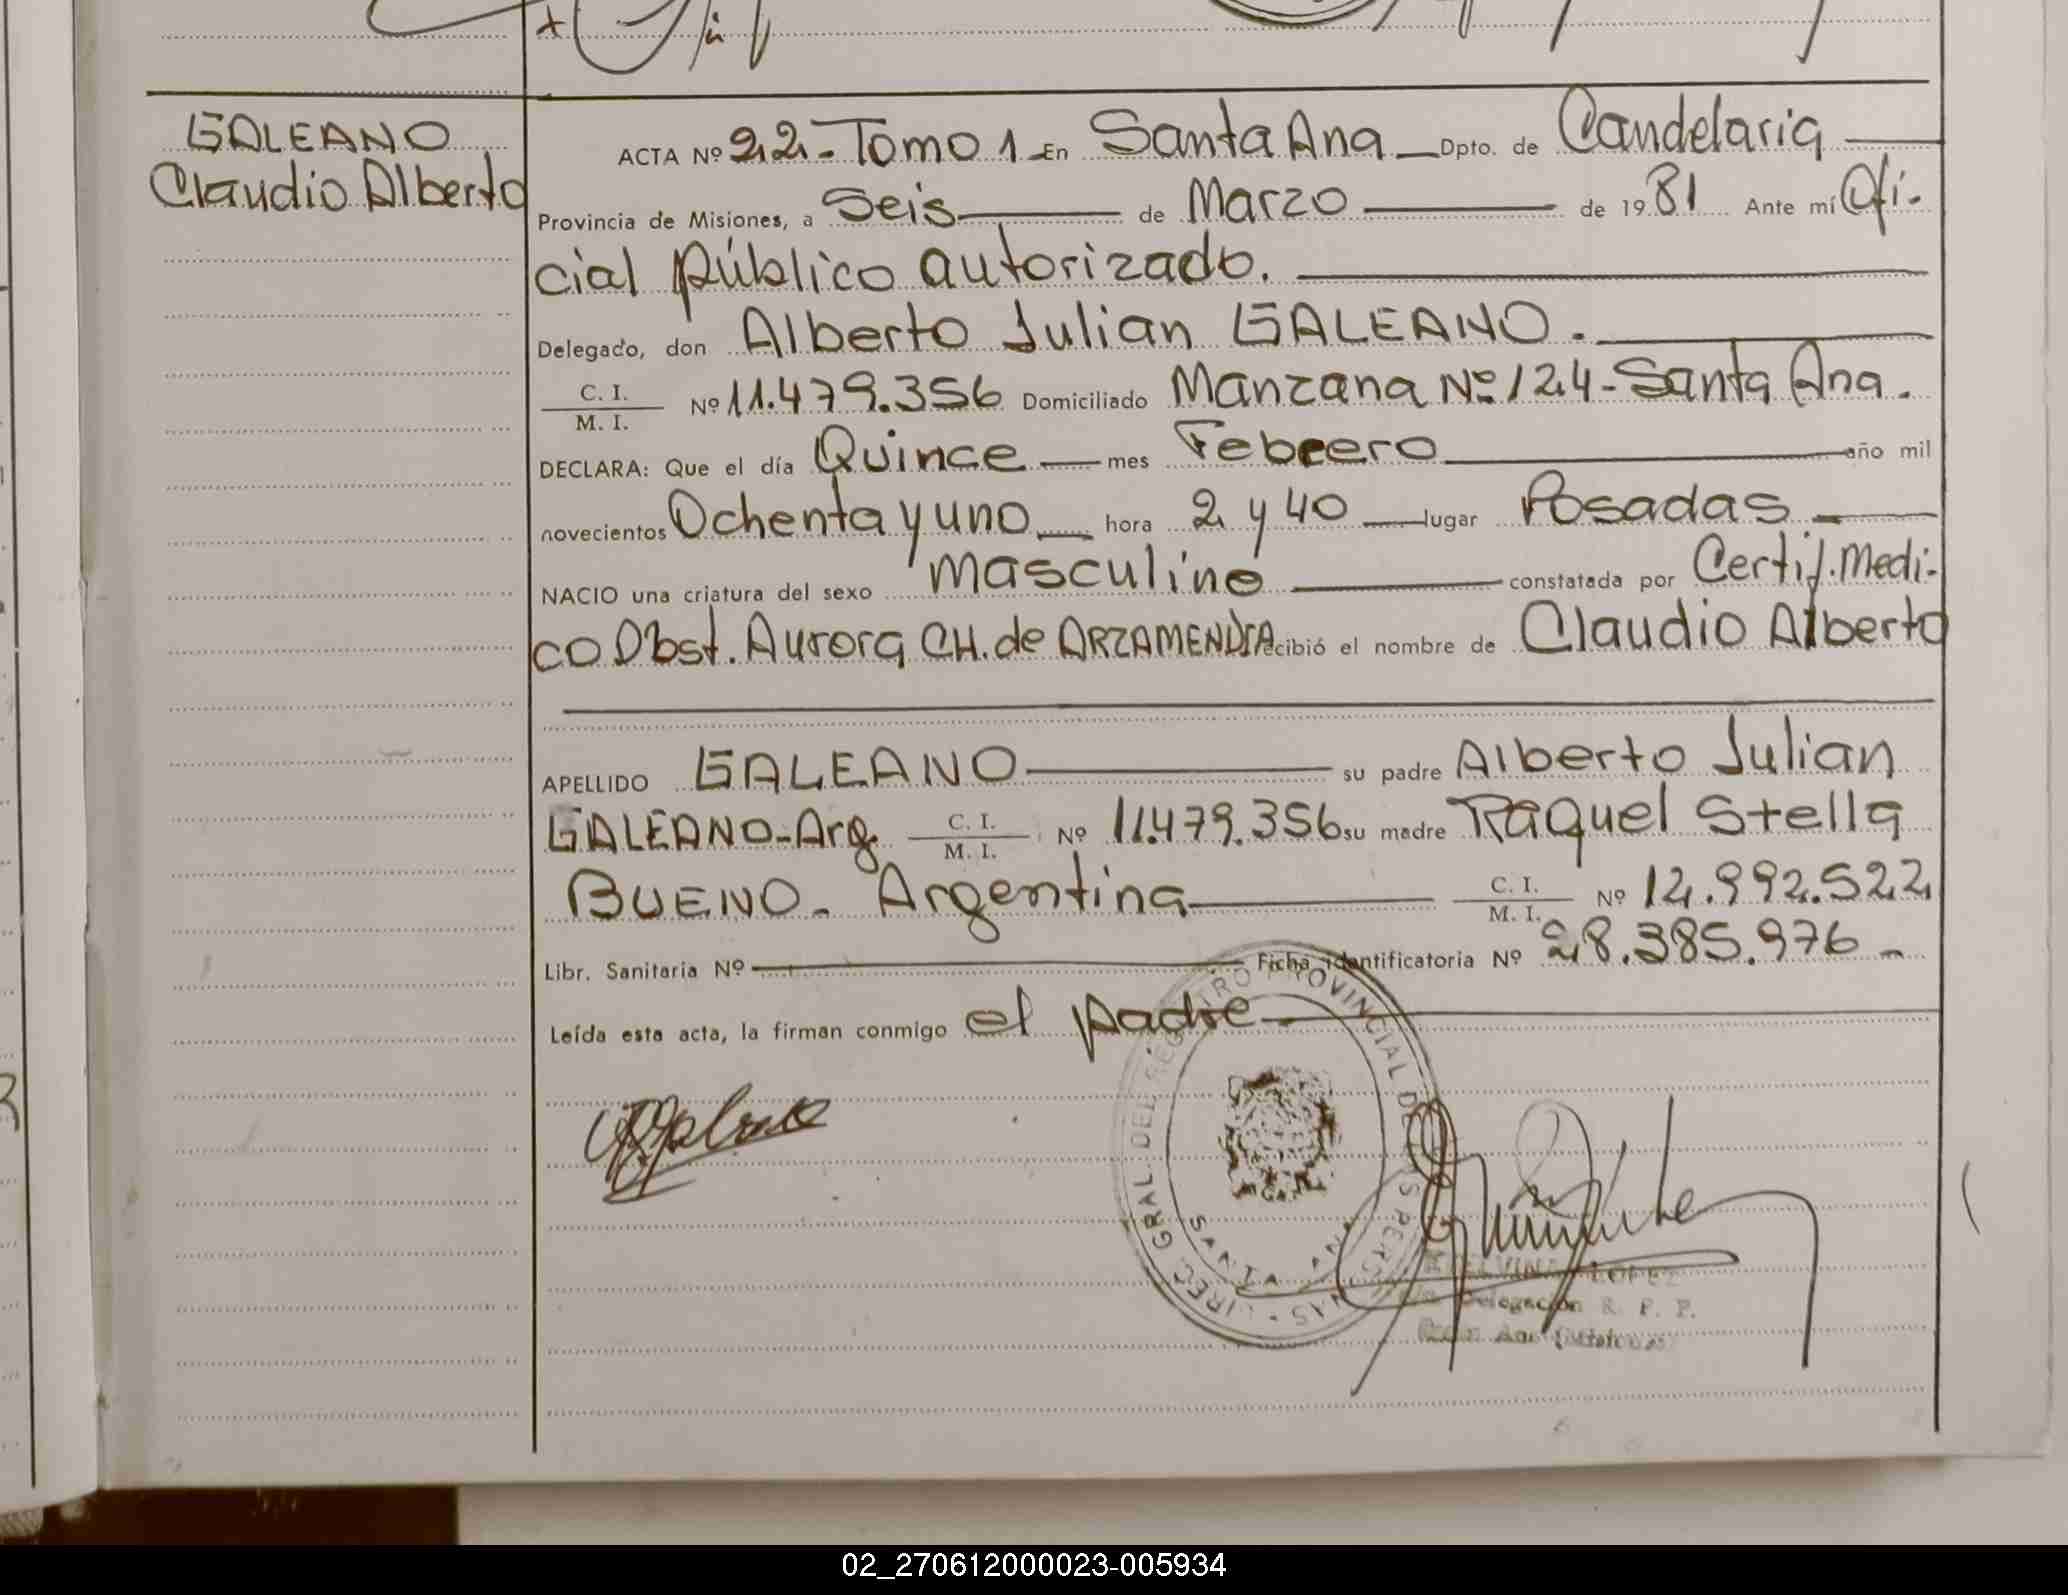 GALEANO
Claudio Alberto
ACTA Nº 22-Tomo 1 En Santa Ana Dpto. de Candelaria
Provincia de Misiones, a Seis de Marzo de 1981 Ante mí Ofi-
cial Público autorizado.
Delegado, don Alberto Julian GALEANO.
C. I.
M. I. Nº 11.479.356 Domiciliado Manzana Nº 124-Santa Ana.
DECLARA: Que el día Quince mes Febrero año mil
novecientos Ochenta y uno hora 2 y 40 lugar Posadas
NACIO una criatura del sexo masculino constatada por Certif. Medi-
co Obst. Aurora CH. de ARZAMENDIA recibió el nombre de Claudio Alberto
APELLIDO GALEANO su padre Alberto Julian
GALEANO-Arg. C. I. M. I. Nº 11.479.356 su madre Raquel Stella
BUENO- Argentina C. I. M. I. Nº 12.992.522
Libr. Sanitaria Nº Ficha identificatoria Nº 28.385.976-
Leída esta acta, la firman conmigo el padre
DIREC. GRAL. DEL REGISTRO PROVINCIAL DE LAS PERSONAS
SANTA ANA
LOPEZ
Delegación R. P. P.
02_270612000023-005934